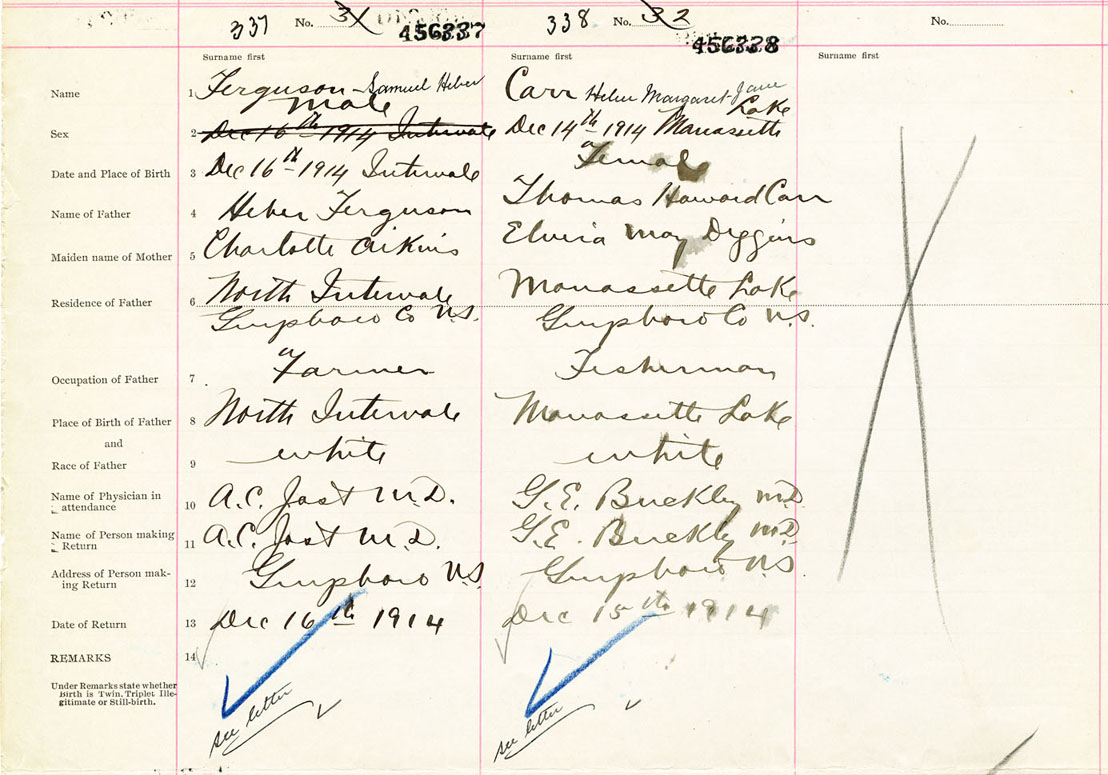 337 No. 31 456337
338 No. 32 456338
No.
Surname first
Surname first
Surname first
Name 1 Ferguson - Samuel Heber
Carr Helen Margaret Jane
Male
Sex 2 Dec 16th 1914 Intervale
Dec 14th 1914 Manassette Lake
Female
Date and Place of Birth 3 Dec 16th 1914 Intervale
Name of Father 4 Heber Ferguson
Thomas Howard Carr
Maiden name of Mother 5 Charlotte Aikins
Elvira May Diggins
Residence of Father 6 North Intervale
Manassette Lake
Guysboro Co N.S.
Guysboro Co N.S.
Occupation of Father 7 Farmer
Fisherman
Place of Birth of Father 8 North Intervale
Manassette Lake
and
Race of Father 9 white
white
Name of Physician in
attendance 10 A.C. Jost M.D.
G.E. Buckley M.D.
Name of Person making
Return 11 A.C. Jost M.D.
G.E. Buckley M.D.
Address of Person mak-
ing Return 12 Guysboro N.S
Guysboro N.S
Date of Return 13 Dec 16th 1914
Dec 15th 1914
REMARKS 14
Under Remarks state whether
Birth is Twin, Triplet Ille-
gitimate or Still-birth.
see letter
see letter